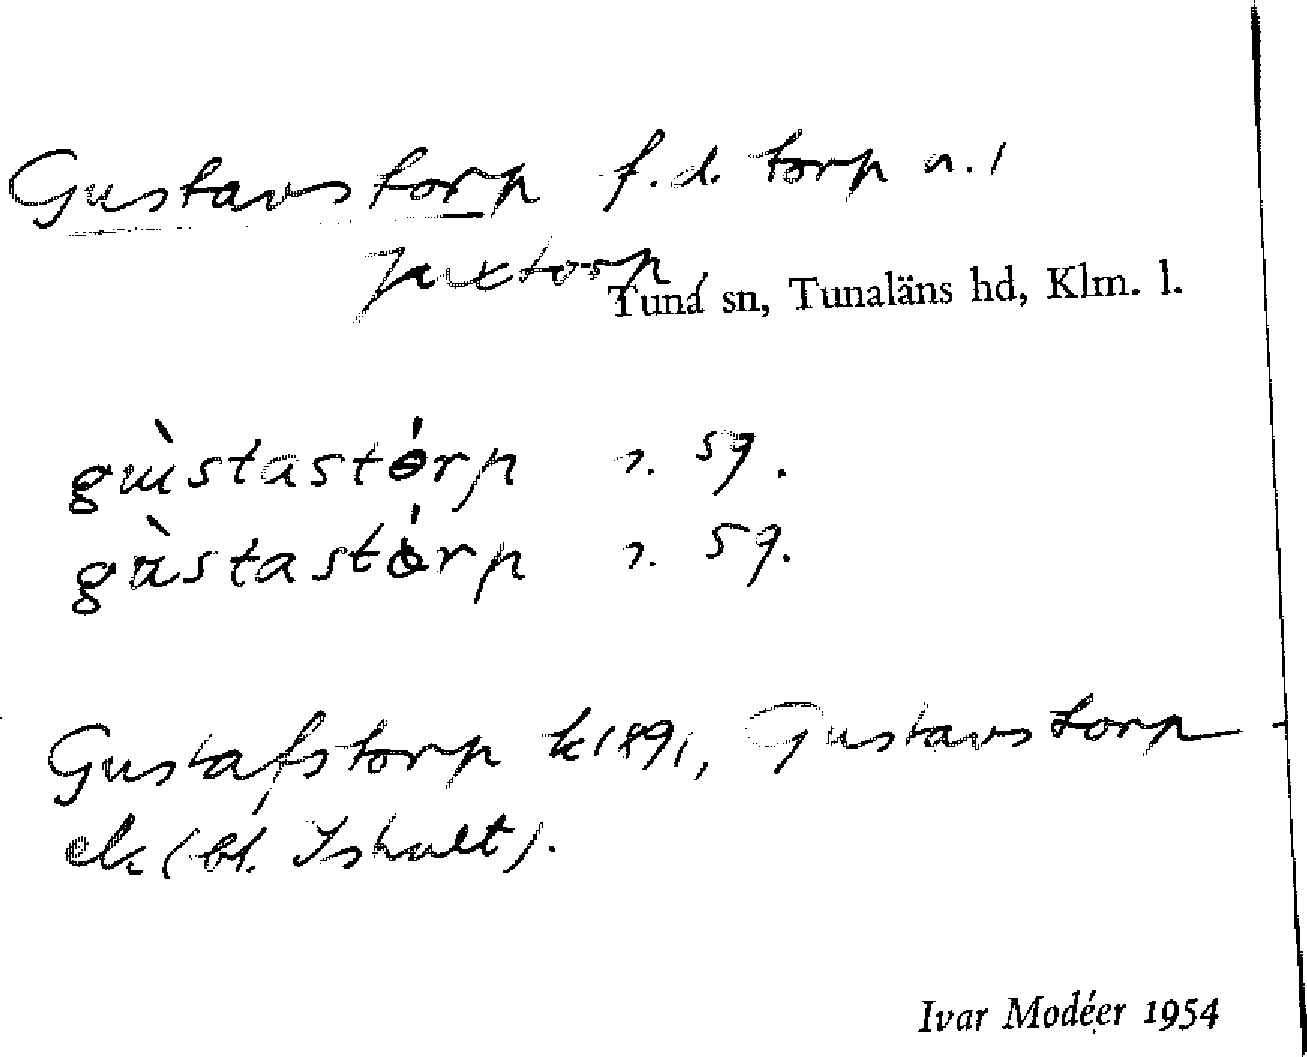 Gustavstorp f.d. torp u. /
Juxtorp,
Tuna sn, Tunaläns hd, Klm. l.
gùstastórp n. sg.
gùstastórp n. sg.
Gustafstorp k 1891, Gustavstorp
ek (bl. Ishult).
Ivar Modéer 1954